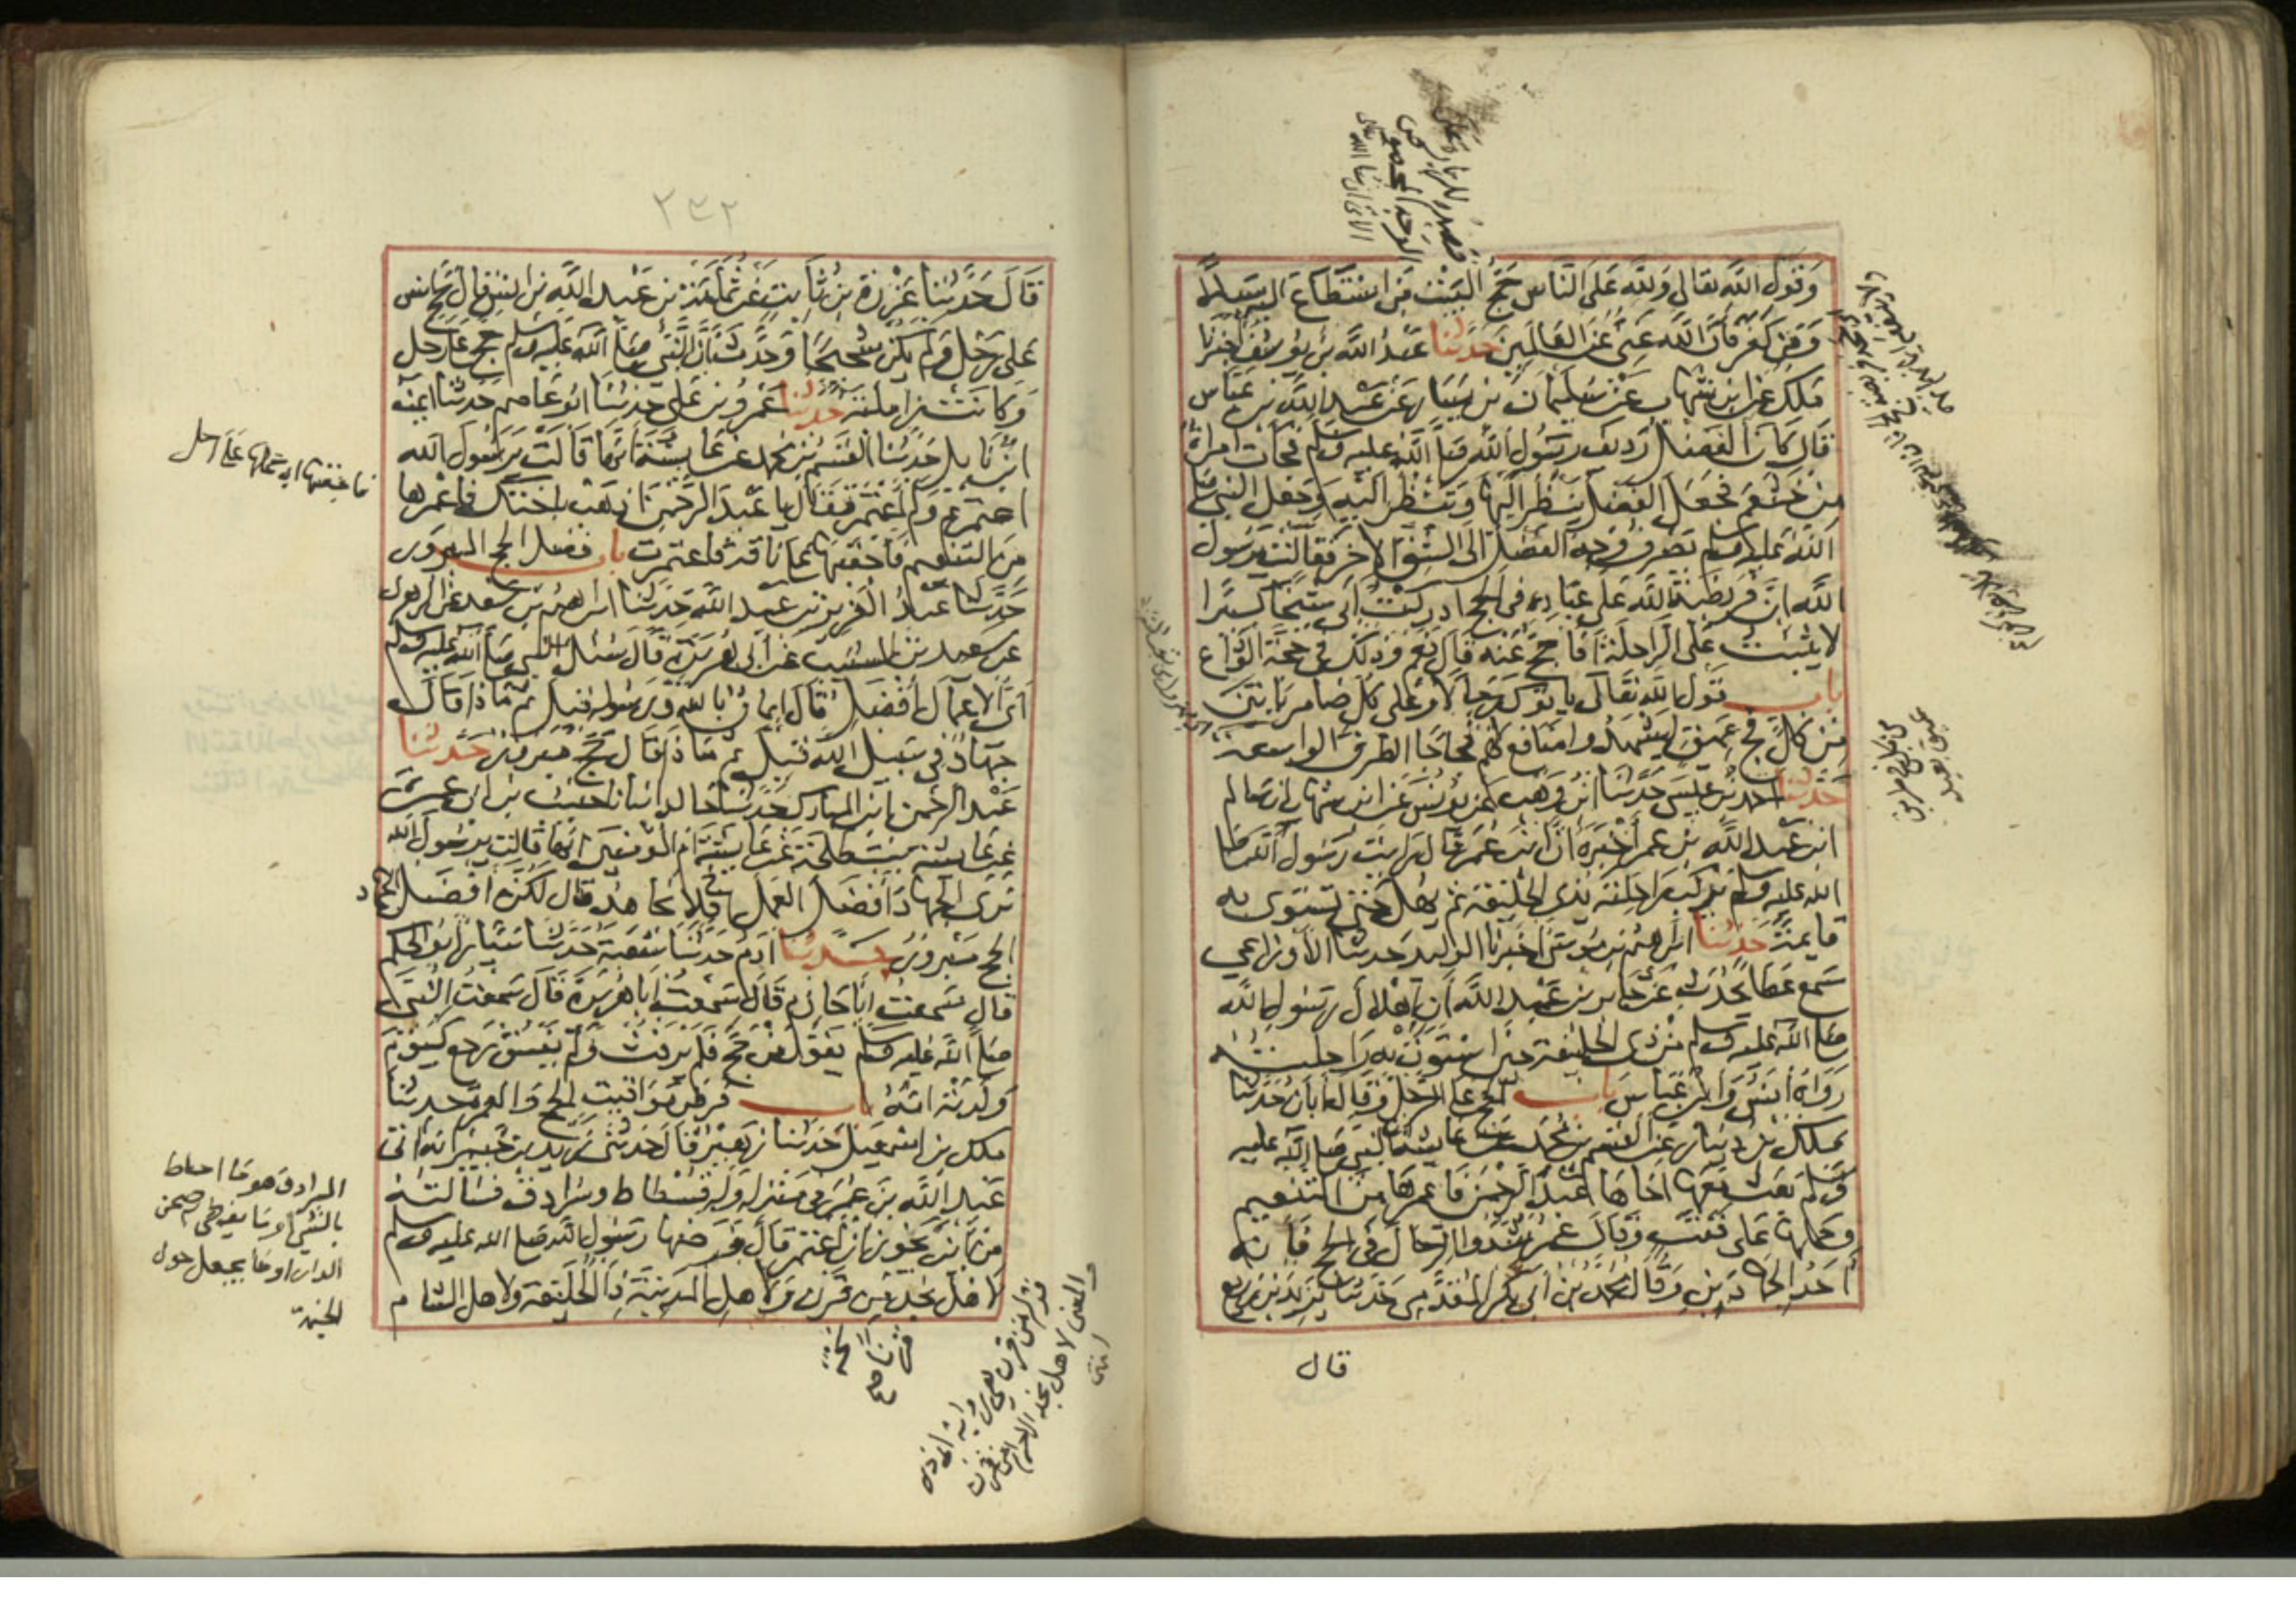 وقول الله تعالى ولله على الناس حج البيت من استطاع اليه سبيلا
ومن كفر فان الله غني عن العالمين حدثنا عبد الله بن يوسف اخبرنا
ملك عن ابن شهاب عن سليمان بن يسار عن عبد الله بن عباس
قال كان الفضل رديف رسول الله صلى الله عليه وسلم فجات امراة
من خثعم فجعل الفضل ينظر اليها وتنظر اليه وجعل النبي صلى
الله عليه وسلم يصرف وجه الفضل الى الشق الاخر فقالت يرسول
الله ان فريضة الله على عباده في الحج ادركت ابي شيخا كبيرا
لا يثبت على الراحلة افاحج عنه قال نعم وذلك في حجة الوداع
باب قول الله تعالى ياتوك رجالا وعلى كل ضامر ياتين
من كل فج عميق ليشهدوا منافع لهم فجاجا الطرق الواسعة
حدثنا احمد بن عيسى حدثنا ابن وهب عن يونس عن ابن شهاب ان سالم
ابن عبد الله بن عمر اخبره ان ابن عمر قال رايت رسول الله صلى
الله عليه وسلم يركب راحلته بذي الحليفة ثم يهل حتى تستوي به
قايمة حدثنا ابراهيم بن موسى اخبرنا الوليد حدثنا الاوزاعي
سمع عطا يحدث عن جابر بن عبد الله ان اهلال رسول الله
صلى الله عليه وسلم من ذي الحليفة حين استوت به راحلته
رواه انس وابن عباس باب الحج على الرحل وقال ابان حدثنا
ملك بن دينار عن القسم بن محمد عن عايشة ان النبي صلى الله عليه
وسلم بعث معها اخاها عبد الرحمن فاعمرها من التنعيم
وحملها على قتب وقال عمر شدوا الرحال في الحج فانه
احد الجهادين وقال محمد بن ابي بكر المقدمي حدثنا يزيد بن زريع
قال
٢٣٢
قال حدثنا عزرة بن ثابت عن ثمامة بن عبد الله بن انس قال حج انس
على رحل ولم يكن شحيحا وحدث ان النبي صلى الله عليه وسلم حج على رحل
وكانت زاملته حدثنا عمرو بن علي حدثنا ابو عاصم حدثنا ايمن
ابن نابل حدثنا القسم بن محمد عن عايشة انها قالت يرسول الله
اعتمرتم ولم اعتمر فقال يا عبد الرحمن اذهب باختك فاعمرها
من التنعيم فاحقبها على ناقة فاعتمرت باب فضل الحج المبرور
حدثنا عبد العزيز بن عبد الله حدثنا ابراهيم بن سعد عن الزهري
عن سعيد بن المسيب عن ابي هريرة قال سئل النبي صلى الله عليه وسلم
اي الاعمال افضل قال ايمان بالله ورسوله قيل ثم ماذا قال
جهاد في سبيل الله قيل ثم ماذا قال حج مبرور حدثنا
عبد الرحمن بن المبارك حدثنا خالد انبانا حبيب بن ابي عمرة
عن عايشة بنت طلحة عن عايشة ام المؤمنين انها قالت يرسول الله
نرى الجهاد افضل العمل افلا نجاهد قال لكن افضل الجهاد
الحج مبرور حدثنا ادم حدثنا شعبة حدثنا سيار ابو الحكم
قال سمعت ابا حازم قال سمعت ابا هريرة قال سمعت النبي
صلى الله عليه وسلم يقول من حج فلم يرفث ولم يفسق رجع كيوم
ولدته امه باب فرض مواقيت الحج والعمرة حدثنا
ملك بن اسمعيل حدثنا زهير قال حدثني زيد بن جبير انه اتى
عبد الله بن عمر في منزله وله فسطاط وسرادق فسالته
من اين يجوز ان اعتمر قال فرضها رسول الله صلى الله عليه وسلم
لاهل نجد من قرن ولاهل المدينة ذا الحليفة ولاهل الشام
السرادق هو ما احاط
بالشي او ما يغطى صحن
الدار او ما يجعل حول
الخيمة